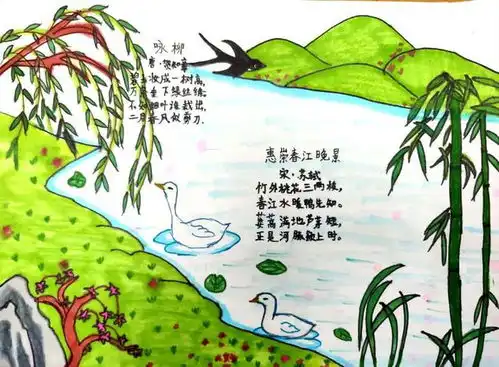 咏柳
唐·贺知章
碧玉妆成一树高,
万条垂下绿丝绦。
不知细叶谁裁出,
二月春风似剪刀.
惠崇春江晚景
宋·苏轼
竹外桃花三两枝,
春江水暖鸭先知。
蒌蒿满地芦芽短,
正是河豚欲上时。